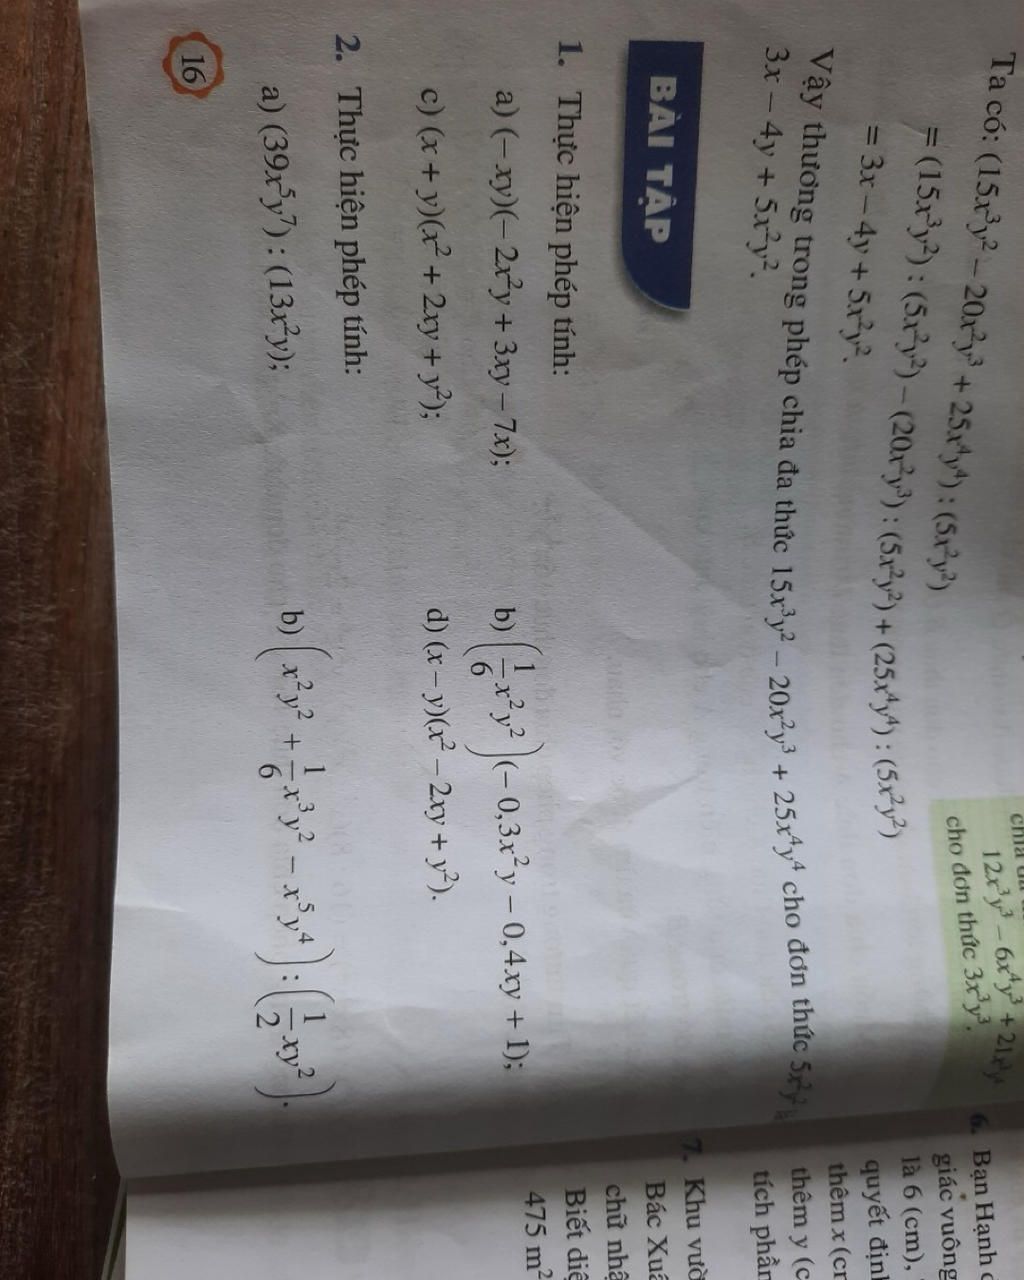 Ta có: (15x³y² – 20x²y³ + 25x⁴y⁴) : (5x²y²)
= (15x³y²) : (5x²y²) – (20x²y³) : (5x²y²) + (25x⁴y⁴) : (5x²y²)
= 3x – 4y + 5x²y².
Vậy thương trong phép chia đa thức 15x³y² – 20x²y³ + 25x⁴y⁴ cho đơn thức 5x²y² là
3x – 4y + 5x²y².
12x³y³ – 6x⁴y³ + 21x³y⁴
cho đơn thức 3x³y³.
BÀI TẬP
1. Thực hiện phép tính:
a) (– xy)(– 2x²y + 3xy – 7x); b) (1/6 x²y²)(– 0,3x²y – 0,4xy + 1);
c) (x + y)(x² + 2xy + y²); d) (x – y)(x² – 2xy + y²).
2. Thực hiện phép tính:
a) (39x⁵y⁷) : (13x²y); b) (x²y² + 1/6 x³y² – x⁵y⁴) : (1/2 xy²).
16
6. Bạn Hạnh
giác vuông
là 6 (cm),
quyết địn
thêm x (c
thêm y (c
tích phần
7. Khu vườ
Bác Xuâ
chữ nhậ
Biết diệ
475 m²